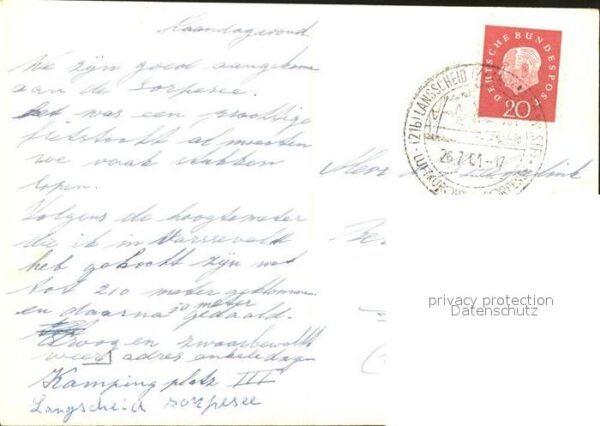 Maandagavond
We zijn goed aangekomen
aan de Sorpesee.
Het was een prachtige
fietstocht al moesten
we vaak stukken
lopen.
Volgens de hoogtemeter
die ik in Varsseveld
heb gekocht zijn we
tot 210 meter geklommen
en daarna 50 meter gedaald.
Droog en zwaarbewolkt
weer adres enkele dagen
Kamping platz III
Langscheid Sorpesee
DEUTSCHE BUNDESPOST
20
(21b) LANGSCHEID
26.7.61-17
LUFTKURORT SORPESEE
privacy protection
Datenschutz